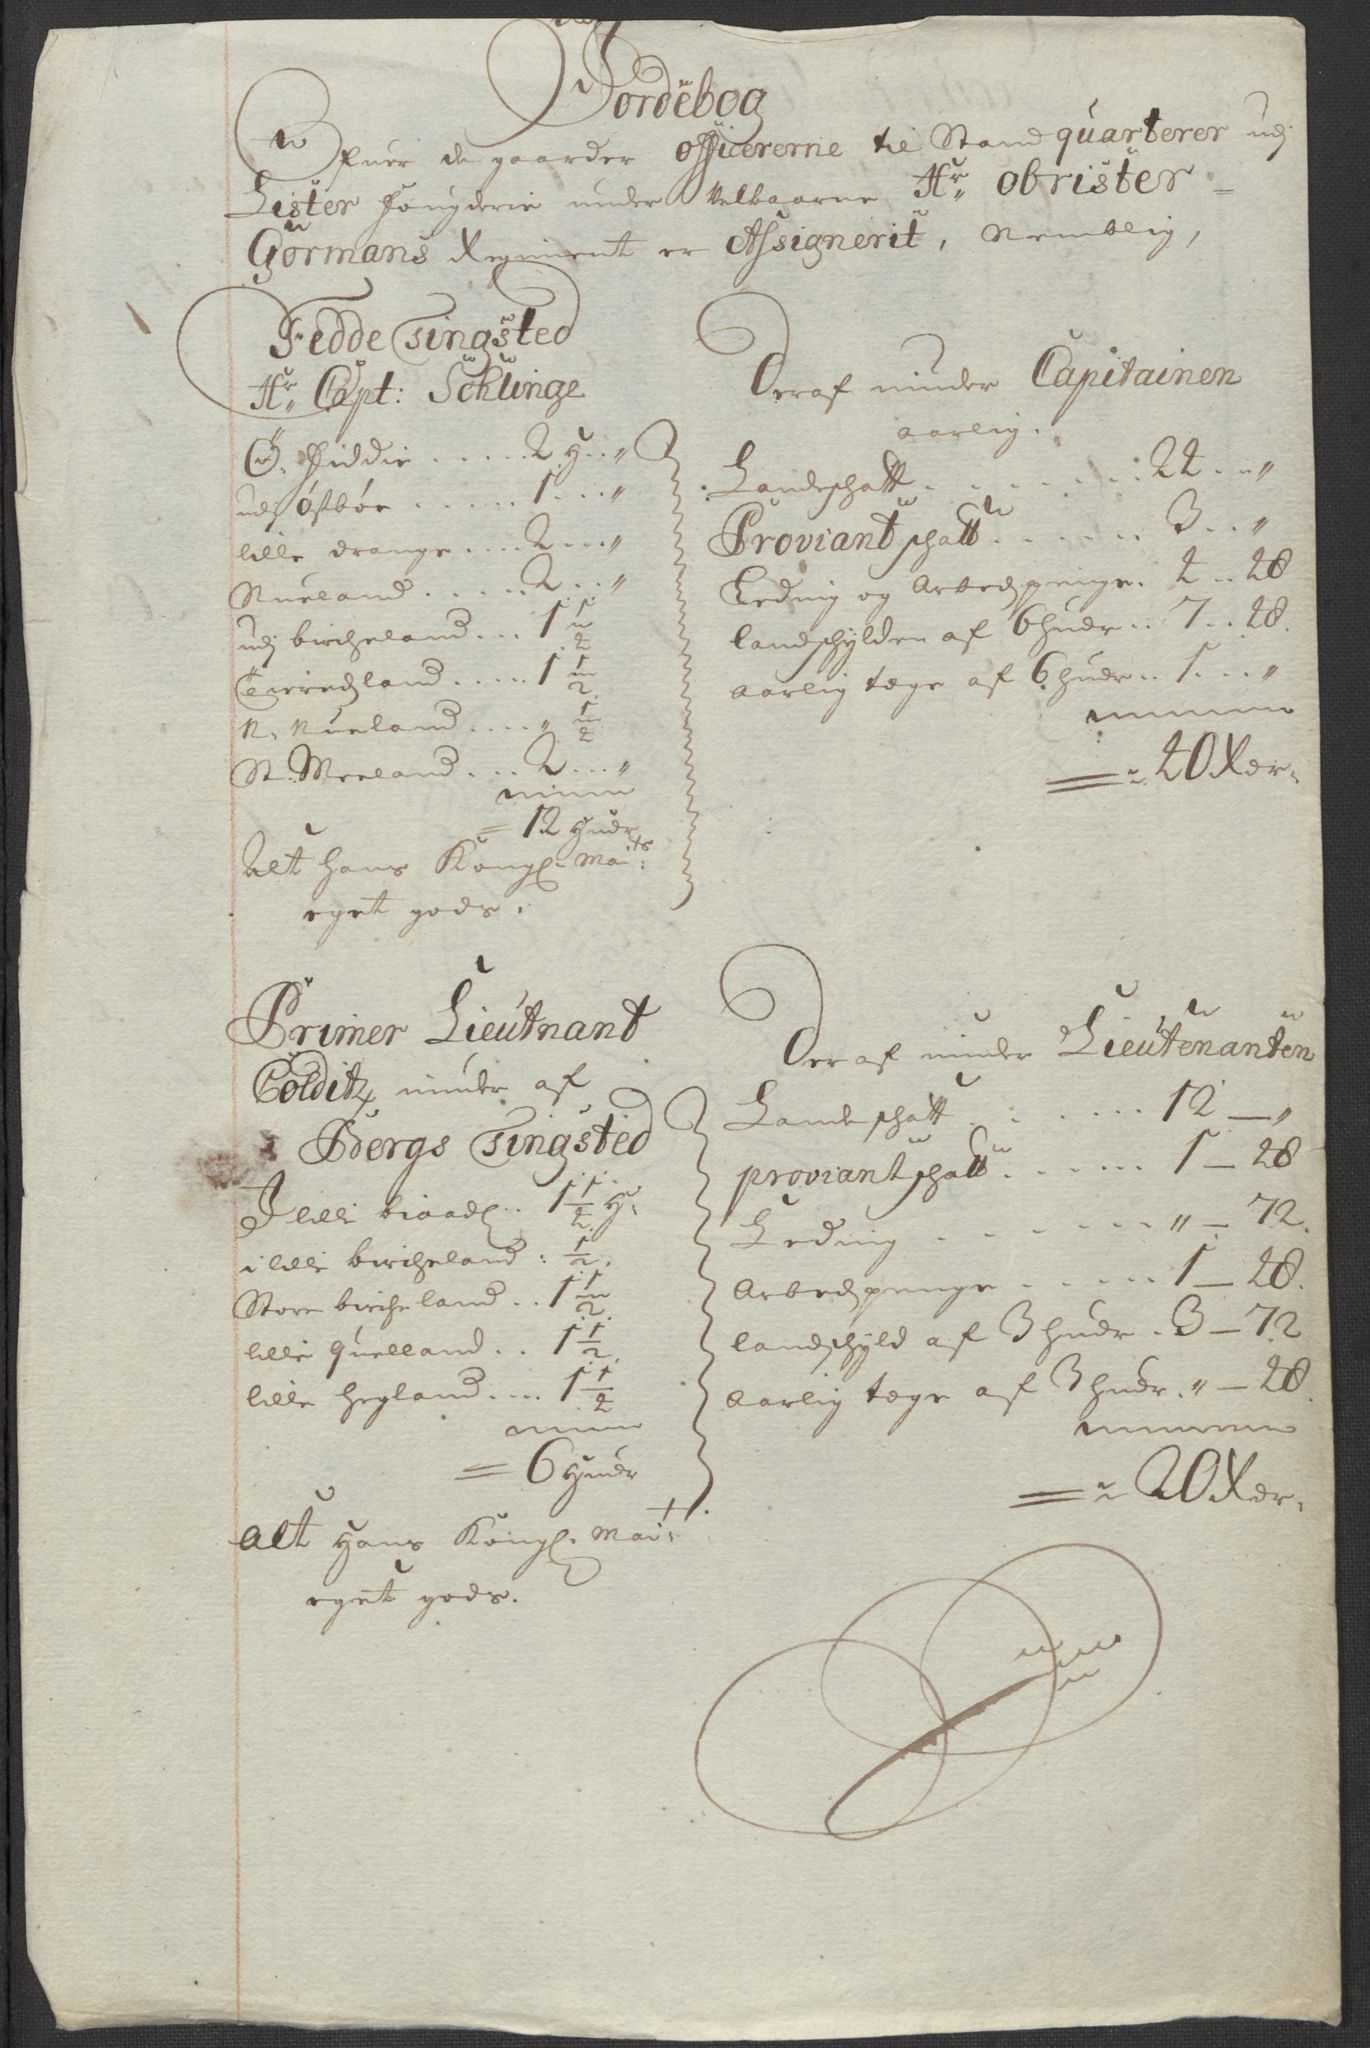 Jordebog
Ofuer de gaarder officererne til Stand quarterer udj
Lister fougderie under Velbaarne Hr. Obrister
Gormans Regiment er Assignerit, Nemblig,
Fedde Tingsted
Hr. Capt: Schlinge
Ø. Fiddie ..... 2 H. "
udj Østbøe ..... 1 ... "
lille drange .... 2 ... "
Nueland ..... 2 ... "
udj bircheland ... 1 1/2
.... 1 1/2
N. Nueland .... " 1/2
St. Meeland ... 2 ... "
= 12 Huder
Alt hans Kongl. Maits:
eget gods.
Deraf niuder Capitainen
aarlig.
Landschatt ........ 24 .. "
Proviantschatt ...... 3 .. "
Leding og Arbedspenge. 4 .. 48
landschylden af 6 huder .. 7 .. 48.
aarlig tæge af 6 huder .. 1 ... "
= 40 Rdr.
Primer Lieutnant
Colditz niuder af
Bergs Tingsted
I lille biaads .. 1 1/2 H.
i lille bircheland : 1/2.
Store bircheland .. 1 1/2
lille quelland .. 1 1/2.
lille hegland .... 1 1/2
= 6 Huder
Alt Hans Kongl. Mait:
eget gods.
Deraf niuder Lieutenanten
Landschatt ....... 12 — "
proviantschatt ...... 1 — 48
Leding ....... " — 72.
Arbedspenge ..... 1 — 48.
landschyld af 3 huder . 3 — 72
Aarlig tæge af 3 huder . " — 48.
= 20 Rdr.